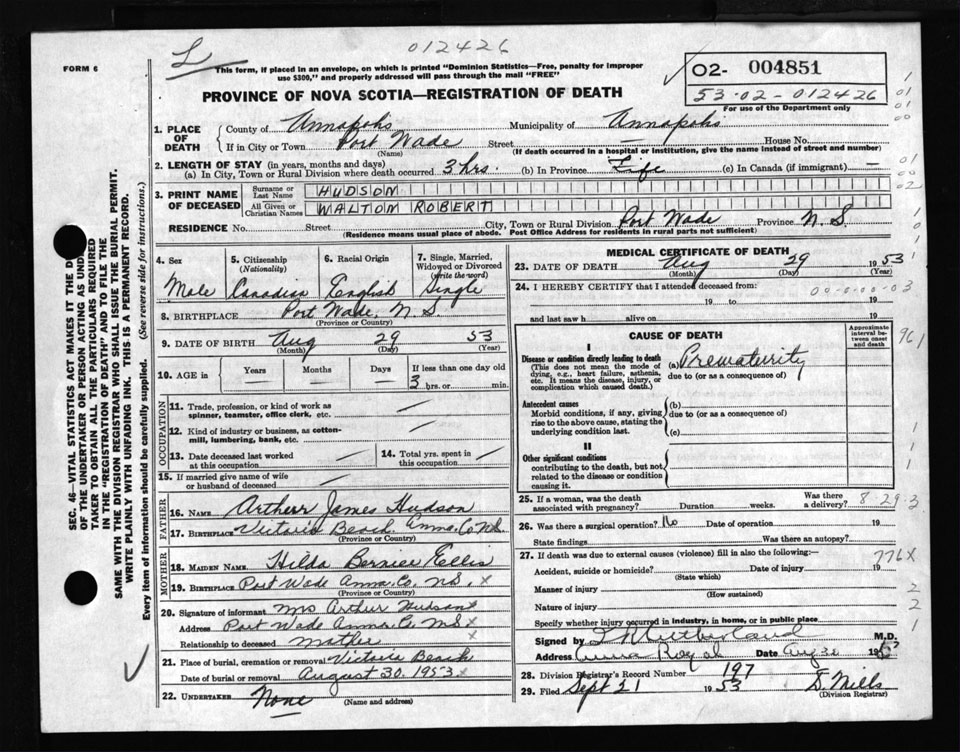 012426
FORM 6
L
This form, if placed in an envelope, on which is printed "Dominion Statistics—Free, penalty for improper
use $300," and properly addressed will pass through the mail "FREE"
02- 004851
53-02-012426
For use of the Department only
PROVINCE OF NOVA SCOTIA—REGISTRATION OF DEATH
1. PLACE OF DEATH
County of Annapolis Municipality of Annapolis
If in City or Town Port Wade Street House No.
(Name) (If death occurred in a hospital or institution, give the name instead of street and number)
2. LENGTH OF STAY (in years, months and days)
(a) In City, Town or Rural Division where death occurred 3 hrs. (b) In Province Life (c) In Canada (if immigrant) —
3. PRINT NAME OF DECEASED
Surname or Last Name HUDSON
All Given or Christian Names WALTOM ROBERT
RESIDENCE No. Street City, Town or Rural Division Port Wade Province N.S.
(Residence means usual place of abode. Post Office Address for residents in rural parts not sufficient)
4. Sex
Male
5. Citizenship
(Nationality)
Canadian
6. Racial Origin
English
7. Single, Married, Widowed or Divorced
(Write the word)
Single
8. BIRTHPLACE Port Wade, N.S.
(Province or Country)
9. DATE OF BIRTH Aug 29 53
(Month) (Day) (Year)
10. AGE in
Years Months Days If less than one day old
3 hrs. or min.
OCCUPATION
11. Trade, profession, or kind of work as
spinner, teamster, office clerk, etc. —
12. Kind of industry or business, as cotton-
mill, lumbering, bank, etc. —
13. Date deceased last worked
at this occupation —
14. Total yrs. spent in
this occupation —
15. If married give name of wife
or husband of deceased —
FATHER
16. NAME Artherr James Hudson
17. BIRTHPLACE Victoria Beach Anna. Co N.S.
(Province or Country)
MOTHER
18. MAIDEN NAME Hilda Bernice Ellis
19. BIRTHPLACE Port Wade Anna. Co. N.S. x
(Province or Country)
20. Signature of informant Mrs Arthur Hudson x
Address Port Wade Anna. Co. N.S x
Relationship to deceased mother x
21. Place of burial, cremation or removal Victoria Beach
Date of burial or removal August 30. 1953. x
22. UNDERTAKER None
(Name and address)
MEDICAL CERTIFICATE OF DEATH
23. DATE OF DEATH Aug 29 1953
(Month) (Day) (Year)
24. I HEREBY CERTIFY that I attended deceased from:
00-0-00-03
19 to 19
and last saw h alive on 19
CAUSE OF DEATH
Approximate interval between onset and death
I
Disease or condition directly leading to death
(This does not mean the mode of
dying, e.g., heart failure, asthenia,
etc. It means the disease, injury, or
complication which caused death.)
(a) Prematurity
due to (or as a consequence of)
Antecedent causes
Morbid conditions, if any, giving
rise to the above cause, stating the
underlying condition last.
(b)
due to (or as a consequence of)
(c)
II
Other significant conditions
contributing to the death, but not
related to the disease or condition
causing it.
25. If a woman, was the death
associated with pregnancy? Duration weeks. Was there a delivery?
8 29 3
26. Was there a surgical operation? No Date of operation 19
State findings Was there an autopsy?
27. If death was due to external causes (violence) fill in also the following:—
776X
Accident, suicide or homicide? Date of injury 19
(State which)
Manner of injury
(How sustained)
Nature of injury
Specify whether injury occurred in industry, in home, or in public place
Signed by M.D.
Address Anna Royal Date Aug 19
28. Division Registrar's Record Number 197
29. Filed Sept 21 1953 D. Mills
(Division Registrar)
961
SEC. 46—VITAL STATISTICS ACT MAKES IT THE D
OF THE UNDERTAKER OR PERSON ACTING AS UND
TAKER TO OBTAIN ALL THE PARTICULARS REQUIRED
IN THE "REGISTRATION OF DEATH" AND TO FILE THE
SAME WITH THE DIVISION REGISTRAR WHO SHALL ISSUE THE BURIAL PERMIT.
WRITE PLAINLY WITH UNFADING INK. THIS IS A PERMANENT RECORD.
Every item of information should be carefully supplied. (See reverse side for instructions.)